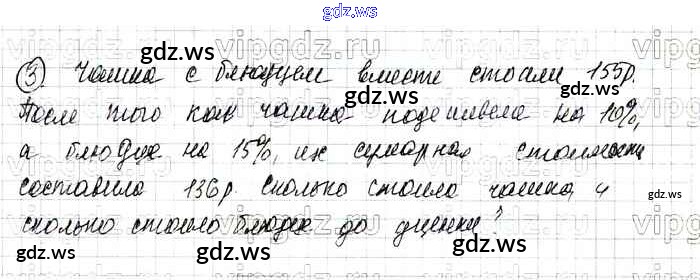 gdz.ws
③ Чашка с блюдцем вместе стоили 155р.
После того как чашка подешевела на 10%,
а блюдце на 15%, их сумарная стоимость
составила 136р. Сколько стоила чашка и
сколько стоило блюдце до уценки?
vipgdz.ru
gdz.ws